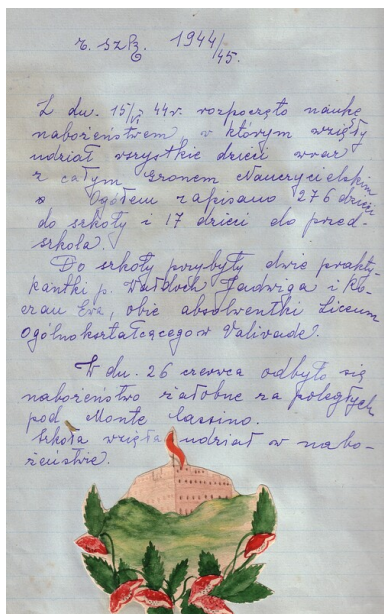 r. szk. 1944/45.
Z dn. 15/VI 44r. rozpoczęto naukę
nabożeństwem, w którym wzięły
udział wszystkie dzieci wraz
z całym Gronem Nauczycielskim
Ogółem zapisano 276 dzieci
do szkoły i 17 dzieci do przed-
szkola.
Do szkoły przybyły dwie prakty-
kantki p. Wałdoch Jadwiga i
Ewa, obie absolwentki Liceum
Ogólnokształcącego w Valivade.
W dn. 26 czerwca odbyło się
nabożeństwo żałobne za poległych
pod Monte Cassino.
Szkoła wzięła udział w nabo-
żeństwie.